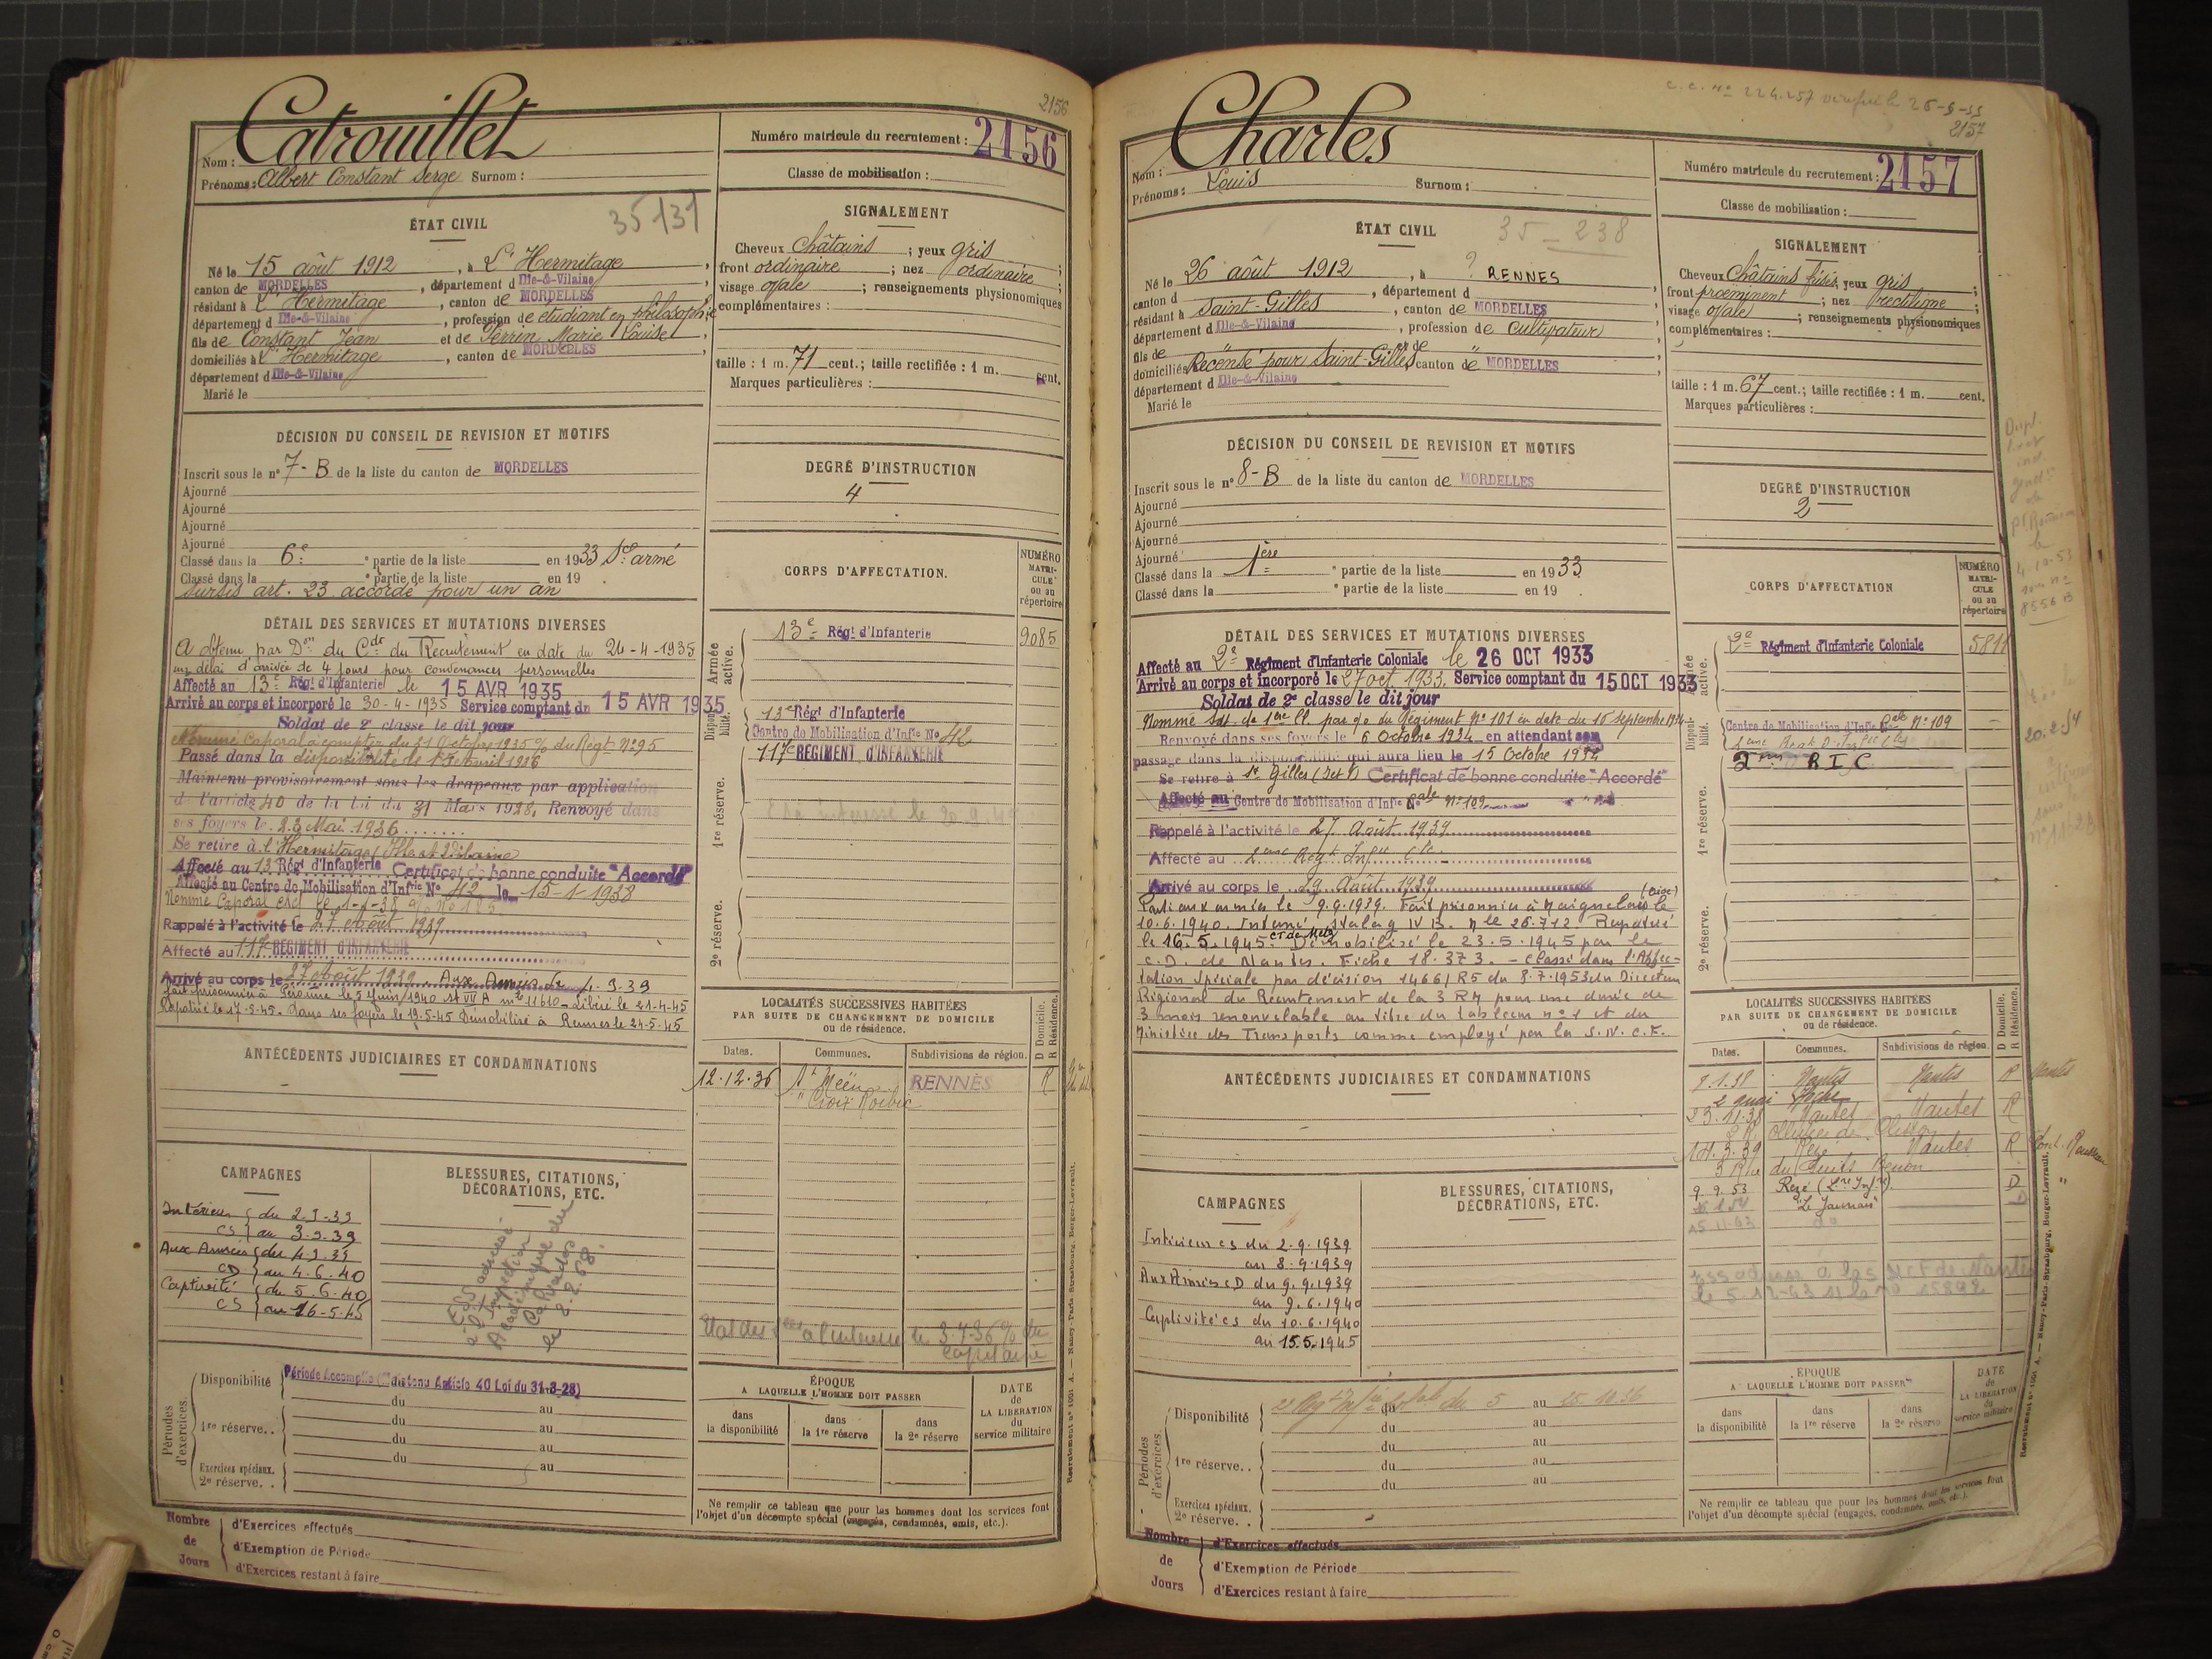 2156
Catrouillet
Nom :
Prénoms : Albert Constant Serge Surnom :
Numéro matricule du recrutement : 2156
Classe de mobilisation :
ÉTAT CIVIL
35131
Né le 15 août 1912, à L'Hermitage,
canton de MORDELLES, département d Ille-&-Vilaine
résidant à L'Hermitage, canton de MORDELLES
département d Ille-&-Vilaine, profession de étudiant en philosophie
fils de Constant Jean et de Perrin Marie Louise,
domiciliés à L'Hermitage, canton de MORDELLES,
département d Ille-&-Vilaine
Marié le
SIGNALEMENT
Cheveux Châtains ; yeux gris ;
front ordinaire ; nez ordinaire ;
visage ovale ; renseignements physionomiques
complémentaires :
taille : 1 m. 71 cent.; taille rectifiée : 1 m. cent.
Marques particulières :
DÉCISION DU CONSEIL DE REVISION ET MOTIFS
Inscrit sous le n° 7-B de la liste du canton de MORDELLES
Ajourné
Ajourné
Ajourné
Ajourné
Classé dans la 6e partie de la liste en 1933 Sce armé
Classé dans la partie de la liste en 19
sursis art. 23 accordé pour un an
DEGRÉ D'INSTRUCTION
4
CORPS D'AFFECTATION.
NUMÉRO MATRICULE ou au répertoire
Armée active.
13e Régt d'Infanterie 9085
Disponibilité.
13e Régt d'Infanterie
Centre de Mobilisation d'Infie No 42
117e REGIMENT D'INFANTERIE
1re réserve.
2e réserve.
DÉTAIL DES SERVICES ET MUTATIONS DIVERSES
A obtenu par Don du Cdt du Recrutement en date du 24-4-1935
un délai d'arrivée de 4 jours pour convenances personnelles
Affecté au 13e Régt d'Infanterie le 15 AVR 1935
Arrivé au corps et incorporé le 30-4-1935 Service comptant du 15 AVR 1935
Soldat de 2e classe le dit jour
Nommé Caporal à compter du 21 Octobre 1935 % du Régt No 95
Passé dans la disponibilité le 15 avril 1936
Maintenu provisoirement sous les drapeaux par application
de l'article 40 de la loi du 31 Mars 1928, Renvoyé dans
ses foyers le 23 Mai 1936
Se retire à l'Hermitage Ille et Vilaine
Affecté au 13 Régt d'Infanterie Certificat de bonne conduite "Accordé"
Affecté au Centre de Mobilisation d'Infrie No 42 le 15-1-1938
Rappelé à l'activité le 27 Août 1939
Affecté au 117e REGIMENT D'INFANTERIE
Arrivé au corps le 27 Août 1939. Aux Armées le 4.9.39
fait prisonnier à Péronne le 5 Juin 1940 St VII A mle 11610 - Libéré le 21-4-45
Rapatrié le 17-5-45. dans ses foyers le 19.5-45 Démobilisé à Rennes le 24-5-45
LOCALITÉS SUCCESSIVES HABITÉES
PAR SUITE DE CHANGEMENT DE DOMICILE
ou de résidence.
D Domicile. R Résidence.
Dates. Communes. Subdivisions de région.
12.12.36 St Méen RENNES R
ANTÉCÉDENTS JUDICIAIRES ET CONDAMNATIONS
CAMPAGNES
Intérieur du 2-9-39
CS au 3-9-39
Aux Armées du 4-9-39
CD au 4.6.40
Captivité du 5.6.40
CS au 16-5-45
BLESSURES, CITATIONS,
DÉCORATIONS, ETC.
ESS adressé
à l'Inspection
Académique du
Calvados
le 2.2.68.
Périodes d'exercices.
Disponibilité Période Accomplie (Maintenu Article 40 Loi du 31-3-28)
du au
1re réserve.. du au
du au
du au
Exercices spéciaux.
2e réserve. .
ÉPOQUE
A LAQUELLE L'HOMME DOIT PASSER
dans la disponibilité
dans la 1re réserve
dans la 2e réserve
DATE de LA LIBERATION du service militaire
Ne remplir ce tableau que pour les hommes dont les services font
l'objet d'un décompte spécial (engagés, condamnés, omis, etc.).
Nombre de Jours
d'Exercices effectués
d'Exemption de Période
d'Exercices restant à faire
2157
Charles
Nom :
Prénoms : Louis Surnom :
Numéro matricule du recrutement : 2157
Classe de mobilisation :
ÉTAT CIVIL
35 - 238
Né le 26 août 1912, à ? RENNES
canton d , département d
résidant à Saint-Gilles, canton de MORDELLES
département d Ille-&-Vilaine, profession de Cultivateur
fils de et de
domiciliés Recensé pour Saint-Gilles canton de MORDELLES
département d Ille-&-Vilaine
Marié le
SIGNALEMENT
Cheveux Châtains frisés, yeux gris ;
front proéminent ; nez rectiligne ;
visage ovale ; renseignements physionomiques
complémentaires :
taille : 1 m. 67 cent.; taille rectifiée : 1 m. cent.
Marques particulières :
DÉCISION DU CONSEIL DE REVISION ET MOTIFS
Inscrit sous le n° 8-B de la liste du canton de MORDELLES
Ajourné
Ajourné
Ajourné
Ajourné
Classé dans la 1ère partie de la liste en 1933
Classé dans la partie de la liste en 19
DEGRÉ D'INSTRUCTION
2
CORPS D'AFFECTATION
NUMÉRO MATRICULE ou au répertoire
Armée active.
2e Régiment d'Infanterie Coloniale 5811
Disponibilité.
Centre de Mobilisation d'Infie Cale No 109
2ème R I C
1re réserve.
2e réserve.
DÉTAIL DES SERVICES ET MUTATIONS DIVERSES
Affecté au 2e Régiment d'Infanterie Coloniale le 26 OCT 1933
Arrivé au corps et incorporé le 27 oct. 1933. Service comptant du 15 OCT 1933
Soldat de 2e classe le dit jour
Nommé Sdt de 1ère Cl. par % du Régiment No 101 en date du 15 Septembre 1934
Renvoyé dans ses foyers le 6 Octobre 1934 en attendant son
passage dans la disponibilité qui aura lieu le 15 Octobre 1934
Se retire à St Gilles (I et V) Certificat de bonne conduite "Accordé"
Affecté au Centre de Mobilisation d'Infie Cale No 109
Rappelé à l'activité le 27 Août 1939
Affecté au 2ème Regt Infie Cle
Arrivé au corps le 29 Août 1939
Parti aux armées le 9.9.1939. Fait prisonnier à Maignelay le (Oise)
10.6.1940. Interné Stalag IV B. n le 26.712 Rapatrié
le 16.5.1945 CR de Metz Démobilisé le 23.5.1945 par le
C.D. de Nantes. Fiche 18.373. - Classé dans l'Affec-
tation Spéciale par décision 14661 R5 du 8.7.1953 du Directeur
Régional du Recrutement de la 3 RM pour une durée de
3 mois renouvelable au titre du tableau no 1 et du
Ministère des Transports comme employé par la S.N.C.F.
LOCALITÉS SUCCESSIVES HABITÉES
PAR SUITE DE CHANGEMENT DE DOMICILE
ou de résidence.
D Domicile. R Résidence.
Dates. Communes. Subdivisions de région.
9.1.38 Nantes Nantes R Nantes
2 quai Hoche
23.11.38 Nantes Nantes R
14.3.39 Rezé Nantes R
9.9.53 Rezé (Lre Infre) D
"Le Jaunais"
ANTÉCÉDENTS JUDICIAIRES ET CONDAMNATIONS
CAMPAGNES
Intérieur CS du 2.9.1939
au 8.9.1939
Aux Armées CD du 9.9.1939
au 9.6.1940
Captivité CS du 10.6.1940
au 15.5.1945
BLESSURES, CITATIONS,
DÉCORATIONS, ETC.
Périodes d'exercices.
Disponibilité du 5 au 25.10.36
du au
1re réserve.. du au
du au
du au
Exercices spéciaux.
2e réserve. .
ÉPOQUE
A LAQUELLE L'HOMME DOIT PASSER
dans la disponibilité
dans la 1re réserve
dans la 2e réserve
DATE de LA LIBERATION du service militaire
Ne remplir ce tableau que pour les hommes dont les services font
l'objet d'un décompte spécial (engagés, condamnés, omis, etc.).
Nombre de Jours
d'Exercices effectués
d'Exemption de Période
d'Exercices restant à faire